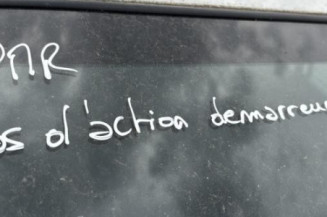 PMR
os d'action demarreu